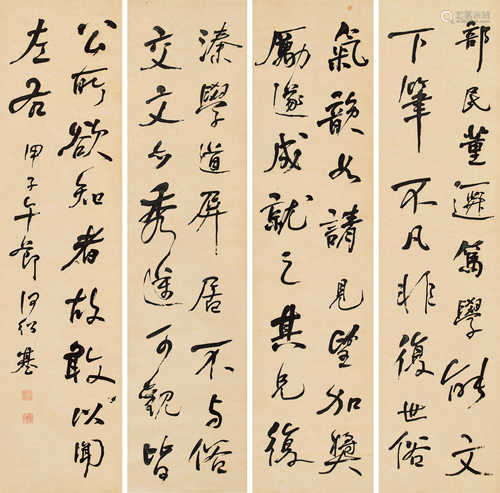 部民董迁笃學能文
下筆不凡非復世俗
氣韻如請見望加奬
勵遂成就之其兄復
溱學道屏居不与俗
交文亦秀逸可觀皆
公所欲知者故敢以聞
左右 甲子午節 何紹基